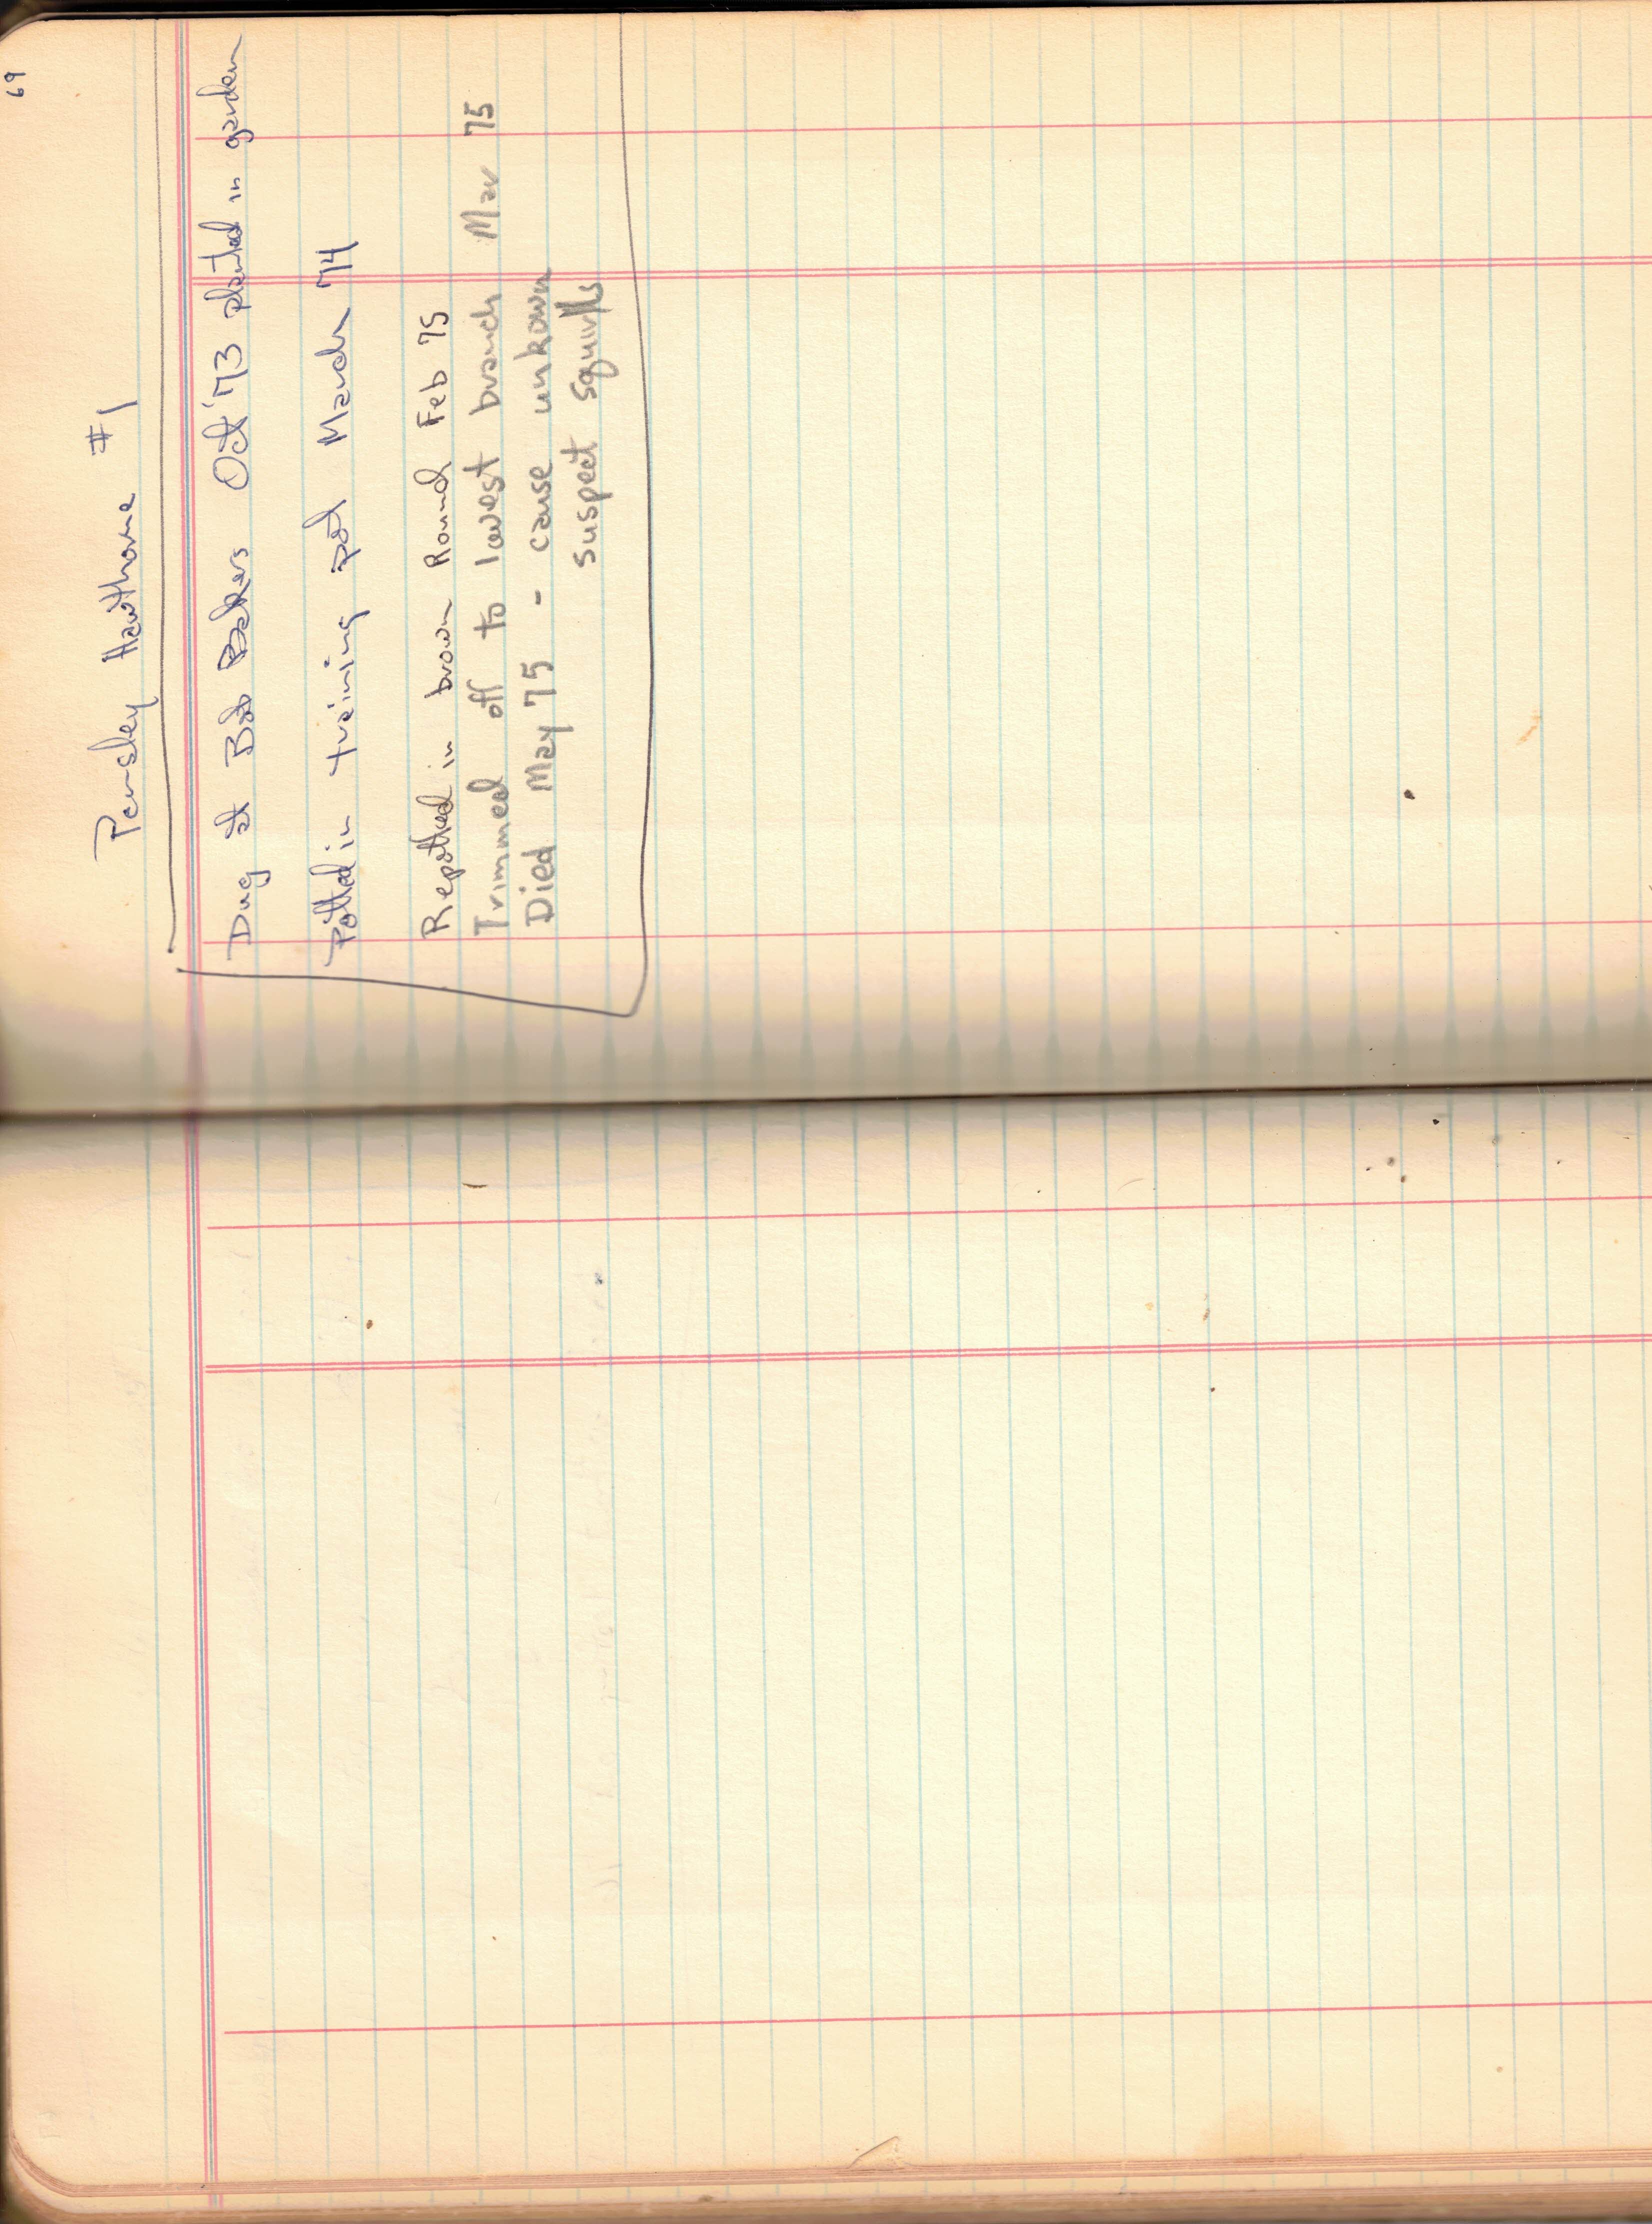 69
Parsley Hawthorne #1
Dug at Bob Bakers Oct '73 planted in garden
Potted in training pot March 74
Repotted in brown Round Feb 75
Trimmed off to lowest branch Mar 75
Died May 75 - cause unkown
suspect squirlls